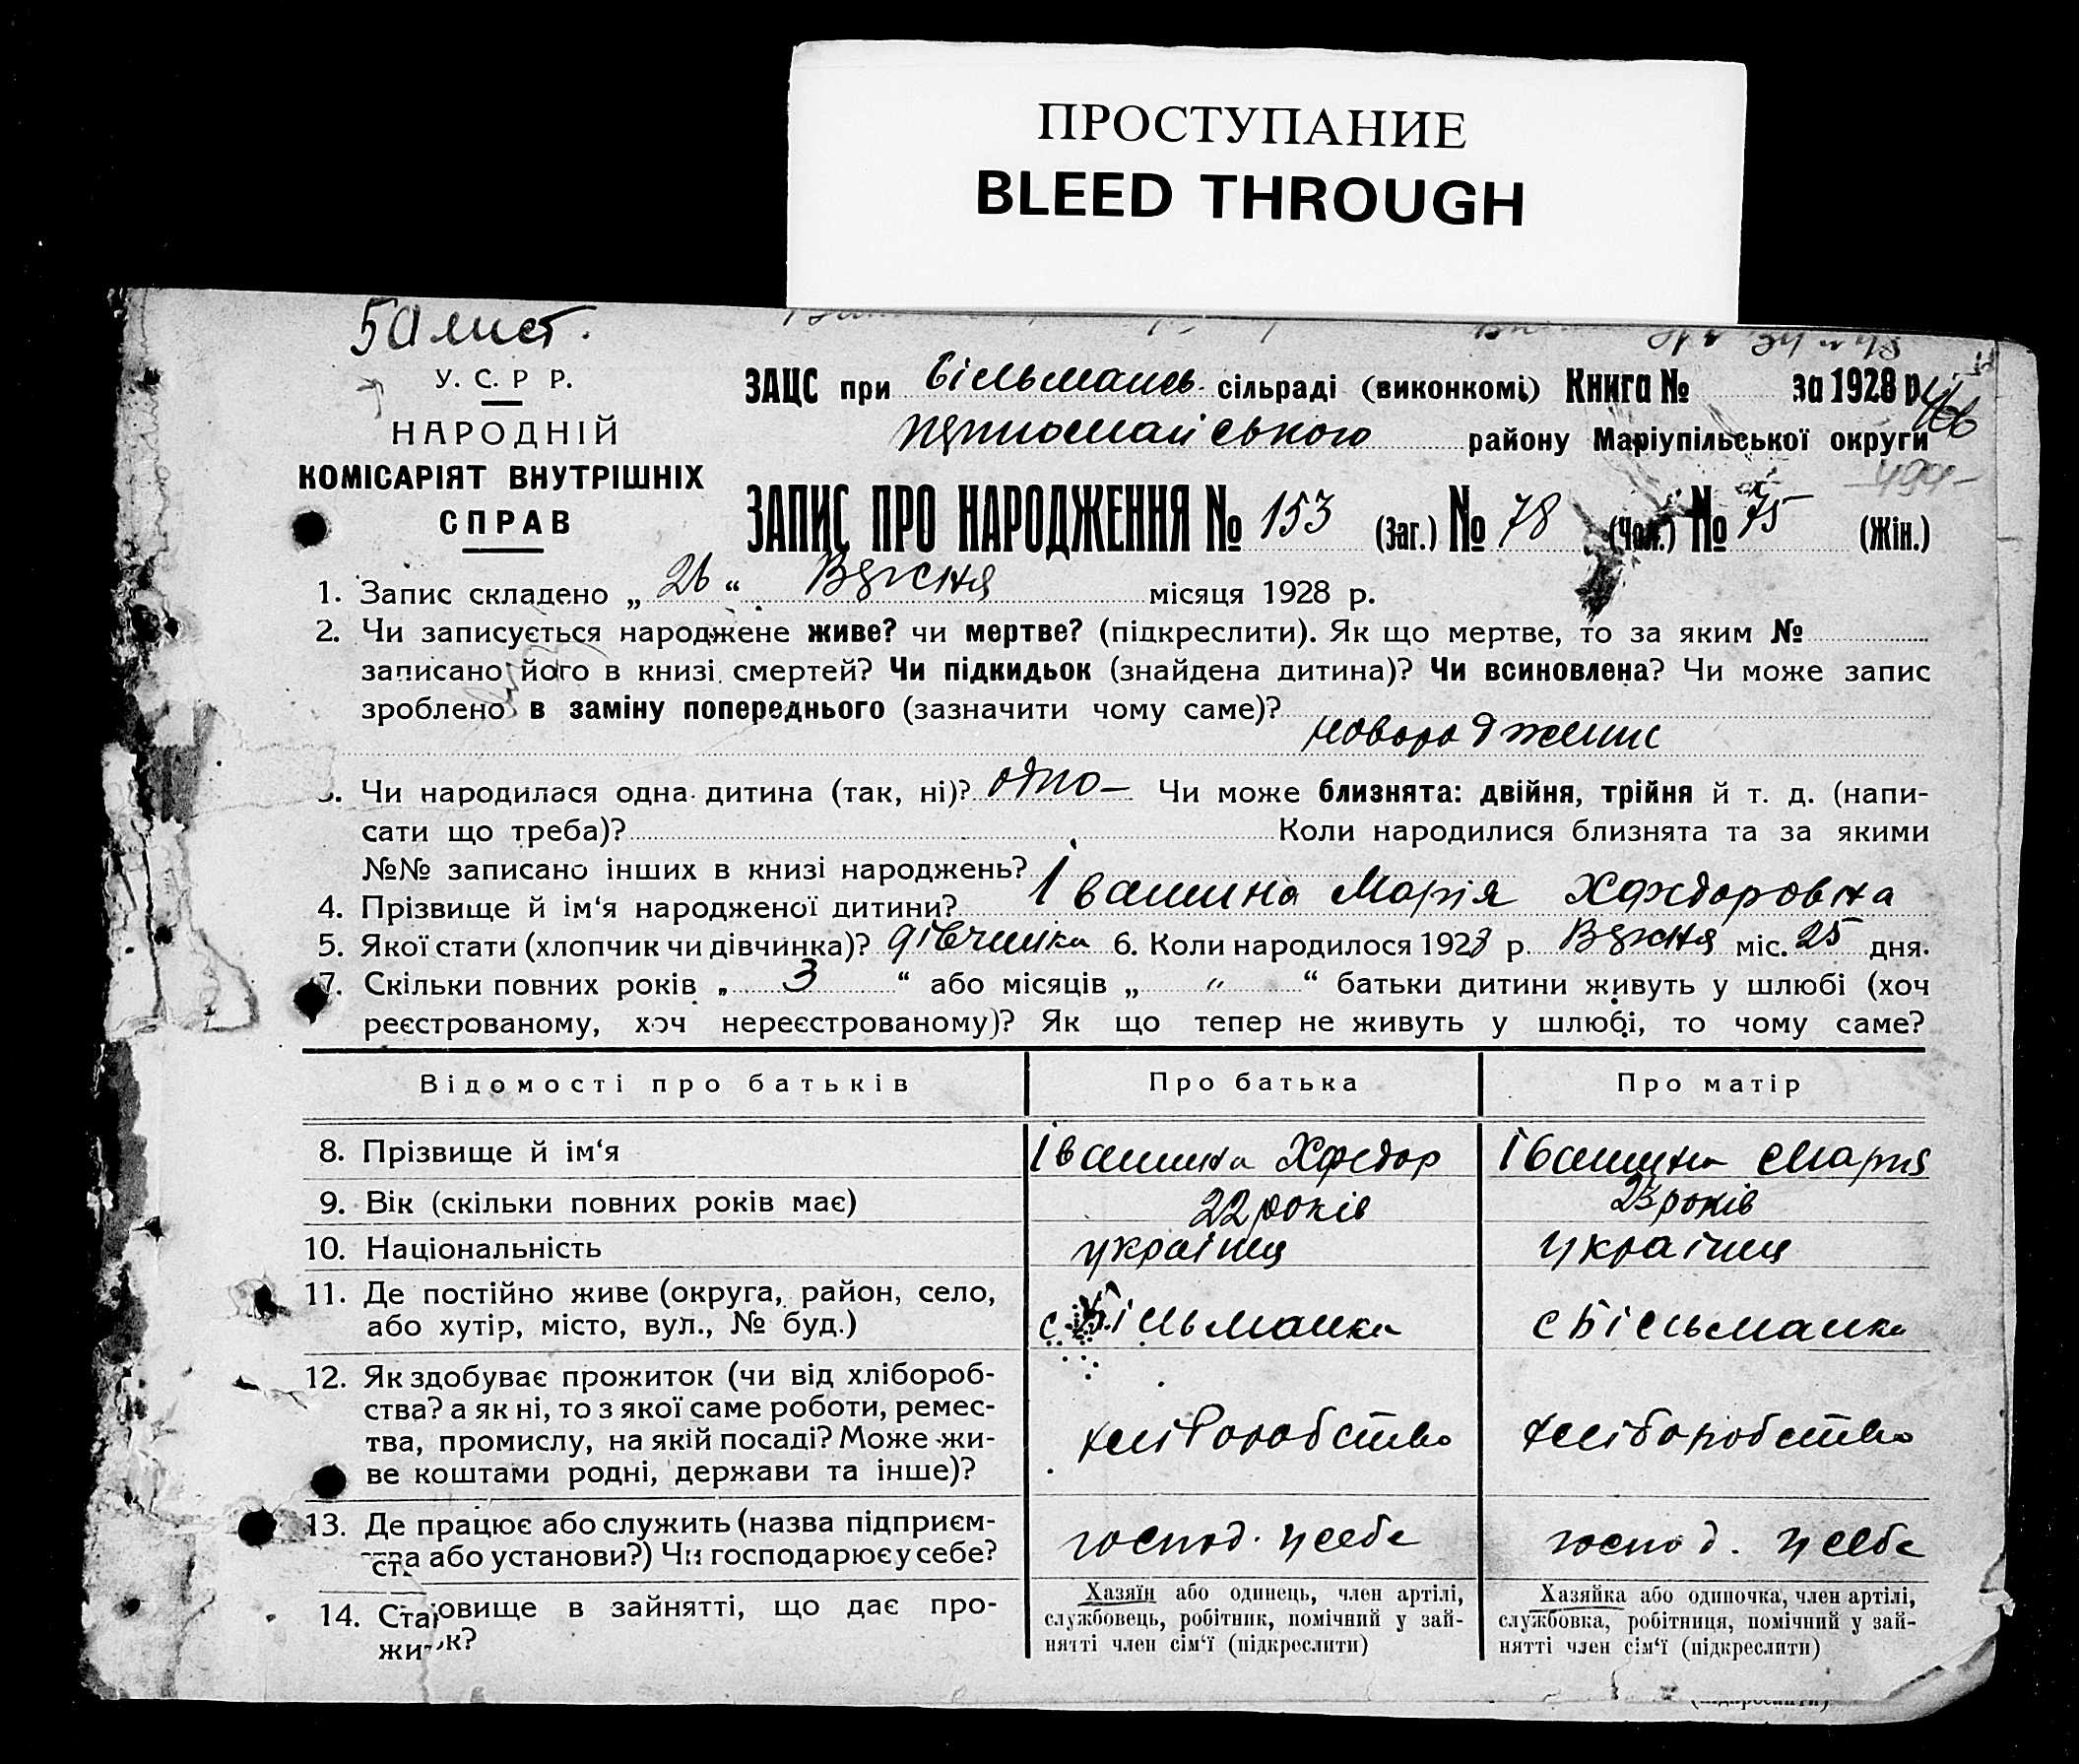 ПРОСТУПАНИЕ
BLEED THROUGH
50 лист.
У. С. Р Р.
НАРОДНІЙ
КОМІСАРІЯТ ВНУТРІШНІХ
СПРАВ
ЗАЦС при Більманськ. сільраді (виконкомі) Книга № за 1928 р.
Першомайського району Маріупільської округи
ЗАПИС ПРО НАРОДЖЕННЯ № 153 (Заг.) № 78 (Чол.) № 75 (Жін.)
1. Запис складено „ 26 “ Вересня місяця 1928 р.
2. Чи записується народжене живе? чи мертве? (підкреслити). Як що мертве, то за яким №
записано його в книзі смертей? Чи підкидьок (знайдена дитина)? Чи всиновлена? Чи може запис
зроблено в заміну попереднього (зазначити чому саме)?
новороджене
3. Чи народилася одна дитина (так, ні)? одно – Чи може близнята: двійня, трійня й т. д. (напи-
сати що треба)? Коли народилися близнята та за якими
№№ записано інших в книзі народжень?
4. Прізвище й ім‘я народженої дитини? Івашина Марія Хфедоровна
5. Якої стати (хлопчик чи дівчинка)? дівчинка 6. Коли народилося 1928 р. Вересня міс. 25 дня.
7. Скільки повних років „ 3 “ або місяців „ “ батьки дитини живуть у шлюбі (хоч
реєстрованому, хоч нереєстрованому)? Як що тепер не живуть у шлюбі, то чому саме?
Відомості про батьків Про батька Про матір
8. Прізвище й ім‘я Івашина Хфедор Івашина Мария
9. Вік (скільки повних років має) 22 років 23 років
10. Національність українц українц
11. Де постійно живе (округа, район, село,
або хутір, місто, вул., № буд.) с Більманка с Більманка
12. Як здобуває прожиток (чи від хлібороб-
ства? а як ні, то з якої саме роботи, ремес-
тва, промислу, на якій посаді? Може жи-
ве коштами родні, держави та інше)? хліборобство хліборобство
13. Де працює або служить (назва підприєм-
ства або установи?) Чи господарює у себе? господ. у себе господ. у себе
14. Становище в зайнятті, що дає про-
житок?
Хазяїн або одинець, член артілі,
службовець, робітник, помічний у зай-
нятті член сім‘ї (підкреслити)
Хазяйка або одиночка, член артілі,
службовка, робітниця, помічний у зай-
нятті член сім‘ї (підкреслити)